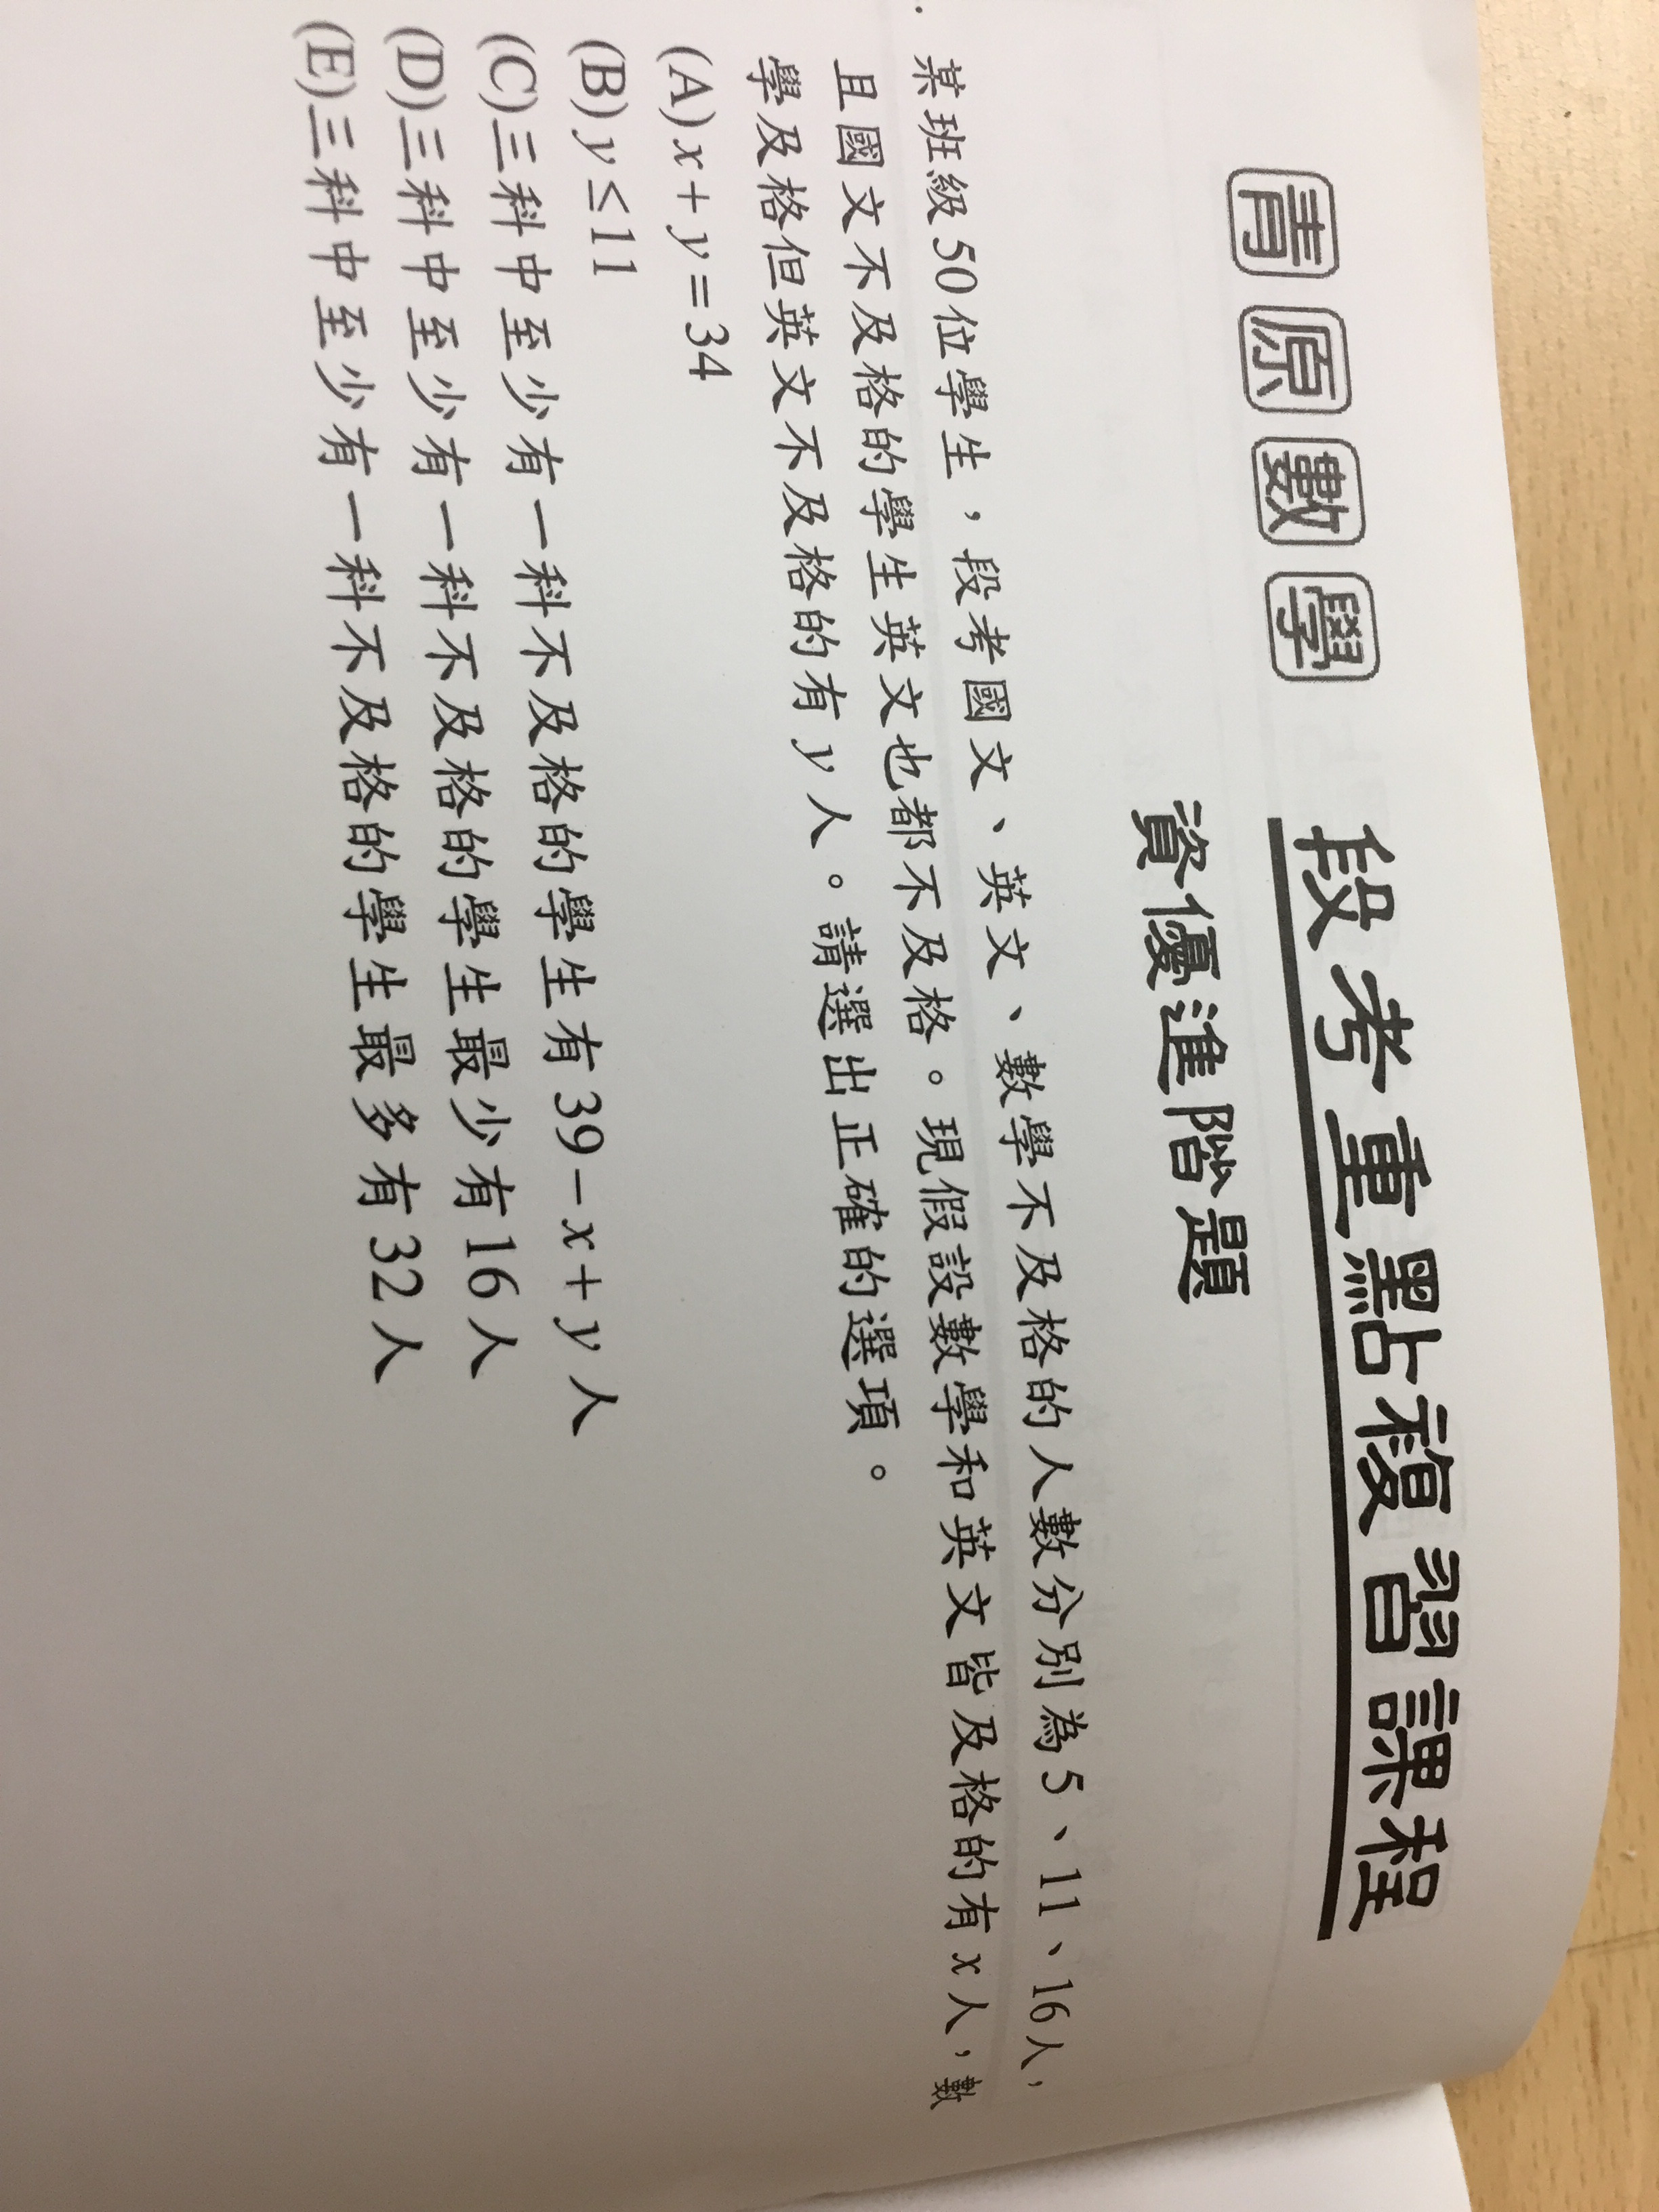 青原數學
段考重點複習課程
資優進階題
某班級50位學生，段考國文、英文、數學不及格的人數分別為5、11、16人，
且國文不及格的學生英文也都不及格。現假設數學和英文皆及格的有x人，數
學及格但英文不及格的有y人。請選出正確的選項。
(A)x+y=34
(B)y≤11
(C)三科中至少有一科不及格的學生有39−x+y人
(D)三科中至少有一科不及格的學生最少有16人
(E)三科中至少有一科不及格的學生最多有32人